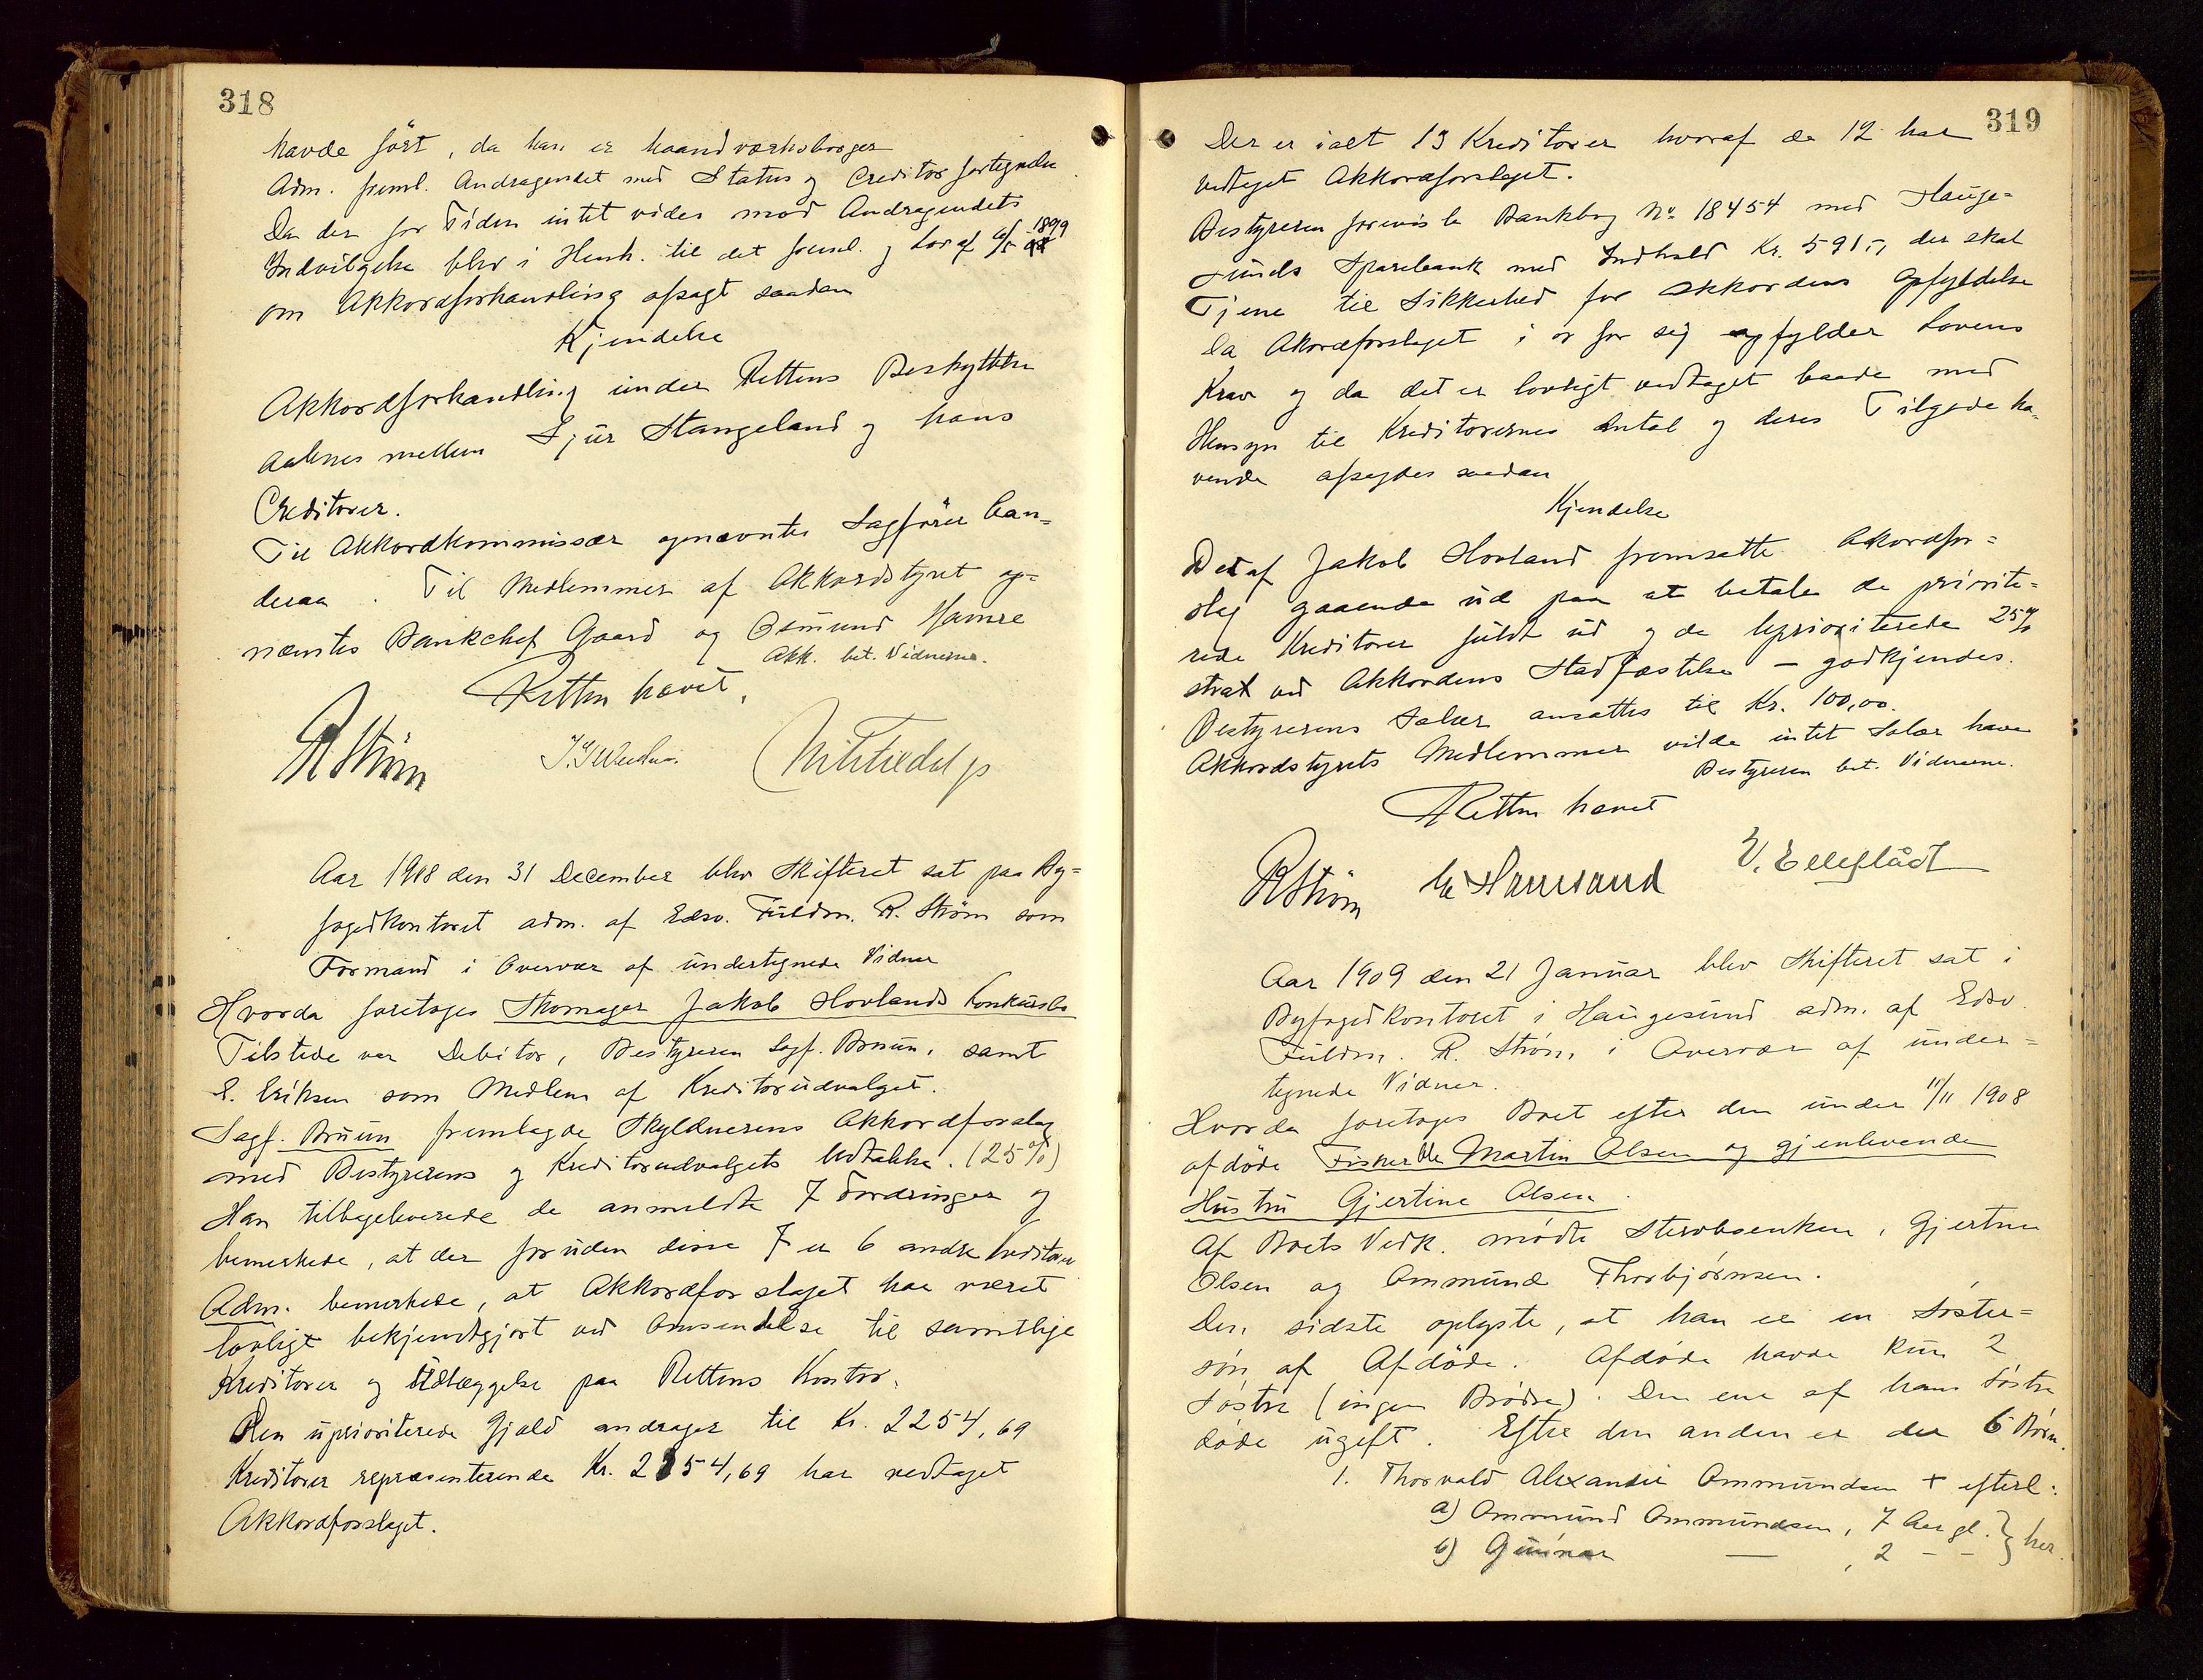 318
havde ført, da han er haandværksborger
Adm. freml. Andragendet med Status og Creditorfortegnelse.
Da der for Tiden intet vides mod Andragendets
Indvilgelse blev i Henh. til det freml. og Lov af 6/5 1899
om Akkordforhandling afsagt saadan
Kjendelse
Akkordforhandling under Rettens Beskyttelse
aabnes mellem Sjur Stangeland og hans
Creditorer.
Til Akkordkommissær opnævntes Sagfører Can-
deraa. Til Medlemmer af Akkordstyret op-
nævntes Bankchef Gaard og Osmund Hamre
Akk. bet. Vidnerne.
Retten hævet.
RStrøm
Aar 1908 den 31 December blev Skifteret sat paa By-
fogedkontoret adm. af Edsv. Fuldm. R. Strøm som
Formand i Overvær af undertegnede Vidner
Hvorda foretages Skomager Jakob Hovlands Konkursbo
Tilstede var Debitor, Bestyreren Sagf. Bruun, samt
E. Eriksen som Medlem af Kreditorudvalget.
Sagf. Bruun fremlagde Skyldnerens Akkordforslag
med Bestyrerens og Kreditorudvalgets Udtalelse. (25%)
Han tilbageleverede de anmeldte 7 Fordringer og
bemerkede, at der foruden disse 7 er 6 andre Kreditorer
Adm. bemerkede, at Akkordforslaget har været
lovligt bekjendtgjort ved Omsendelse til samtlige
Kreditorer og Udlæggelse paa Rettens Kontor.
Den uprioriterede Gjæld andrager til Kr. 2254,69
Kreditorer repræsenterende Kr. 2154,69 har vedtaget
Akkordforslaget.
319
Der er ialt 13 Kreditorer hvoraf de 12 har
vedtaget Akkordforslaget.
Bestyreren foreviste Bankbog No 18454 med Hauge-
sunds Sparebank med Indhold Kr. 591,-, der skal
Tjene til Sikkerhed for Akkordens Opfyldelse
Da Akordforslaget i og for sig opfylder Lovens
Krav og da det er lovligt vedtaget baade med
Hensyn til Kreditorernes Antal og deres Tilgodeha-
vende afsagdes saadan
Kjendelse
Det af Jakob Hovland fremsatte Akordfor-
slag gaaende ud paa at betale de priorite-
rede Kreditorer fuldt ud og de uprioriterede 25%
strax ved Akkordens Stadfæstelse – godkjendes.
Bestyrerens Salær ansattes til Kr. 100,00.
Akkordstyrets Medlemmer vilde intet Salær have
Bestyreren bet. Vidnerne.
Retten hævet
RStrøm
V. Elleflådt
Aar 1909 den 21 Januar blev Skifteret sat i
Byfogedkontoret i Haugesund adm. af Edsv.
Fuldm. R. Strøm i Overvær af under-
tegnede Vidner.
Hvorda foretages Boet efter den under 11/11 1908
afdøde Fisker Ole Martin Olsen og gjenlevende
Hustru Gjertine Olsen.
Af Boets Vedk. mødte Stervboenken, Gjertine
Olsen og Ommund Thorbjørnsen.
Den sidste oplyste, at han er en Søster-
søn af Afdøde. Afdøde havde kun 2
Søstre (ingen Brødre). Den ene af hans Søstre
døde ugift. Efter den anden er der 6 Børn.
1. Thorvald Alexander Ommundsen + efterl.:
a) Ommund Ommundsen, 7 Aar gl. } her.
b) Gunnar — , 2 – –